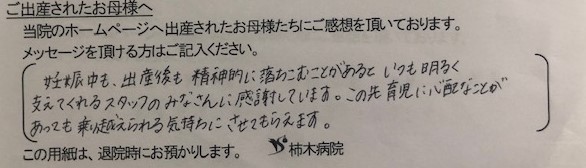 ご出産されたお母様へ
当院のホームページへ出産されたお母様たちにご感想を頂いております。
メッセージを頂ける方はご記入ください。
妊娠中も、出産後も精神的に落ちこむことがあるといつも明るく
支えてくれるスタッフのみなさんに感謝しています。この先育児に心配なことが
あっても乗り越えられる気持ちにさせてもらえます。
この用紙は、退院時にお預かりします。 柿木病院